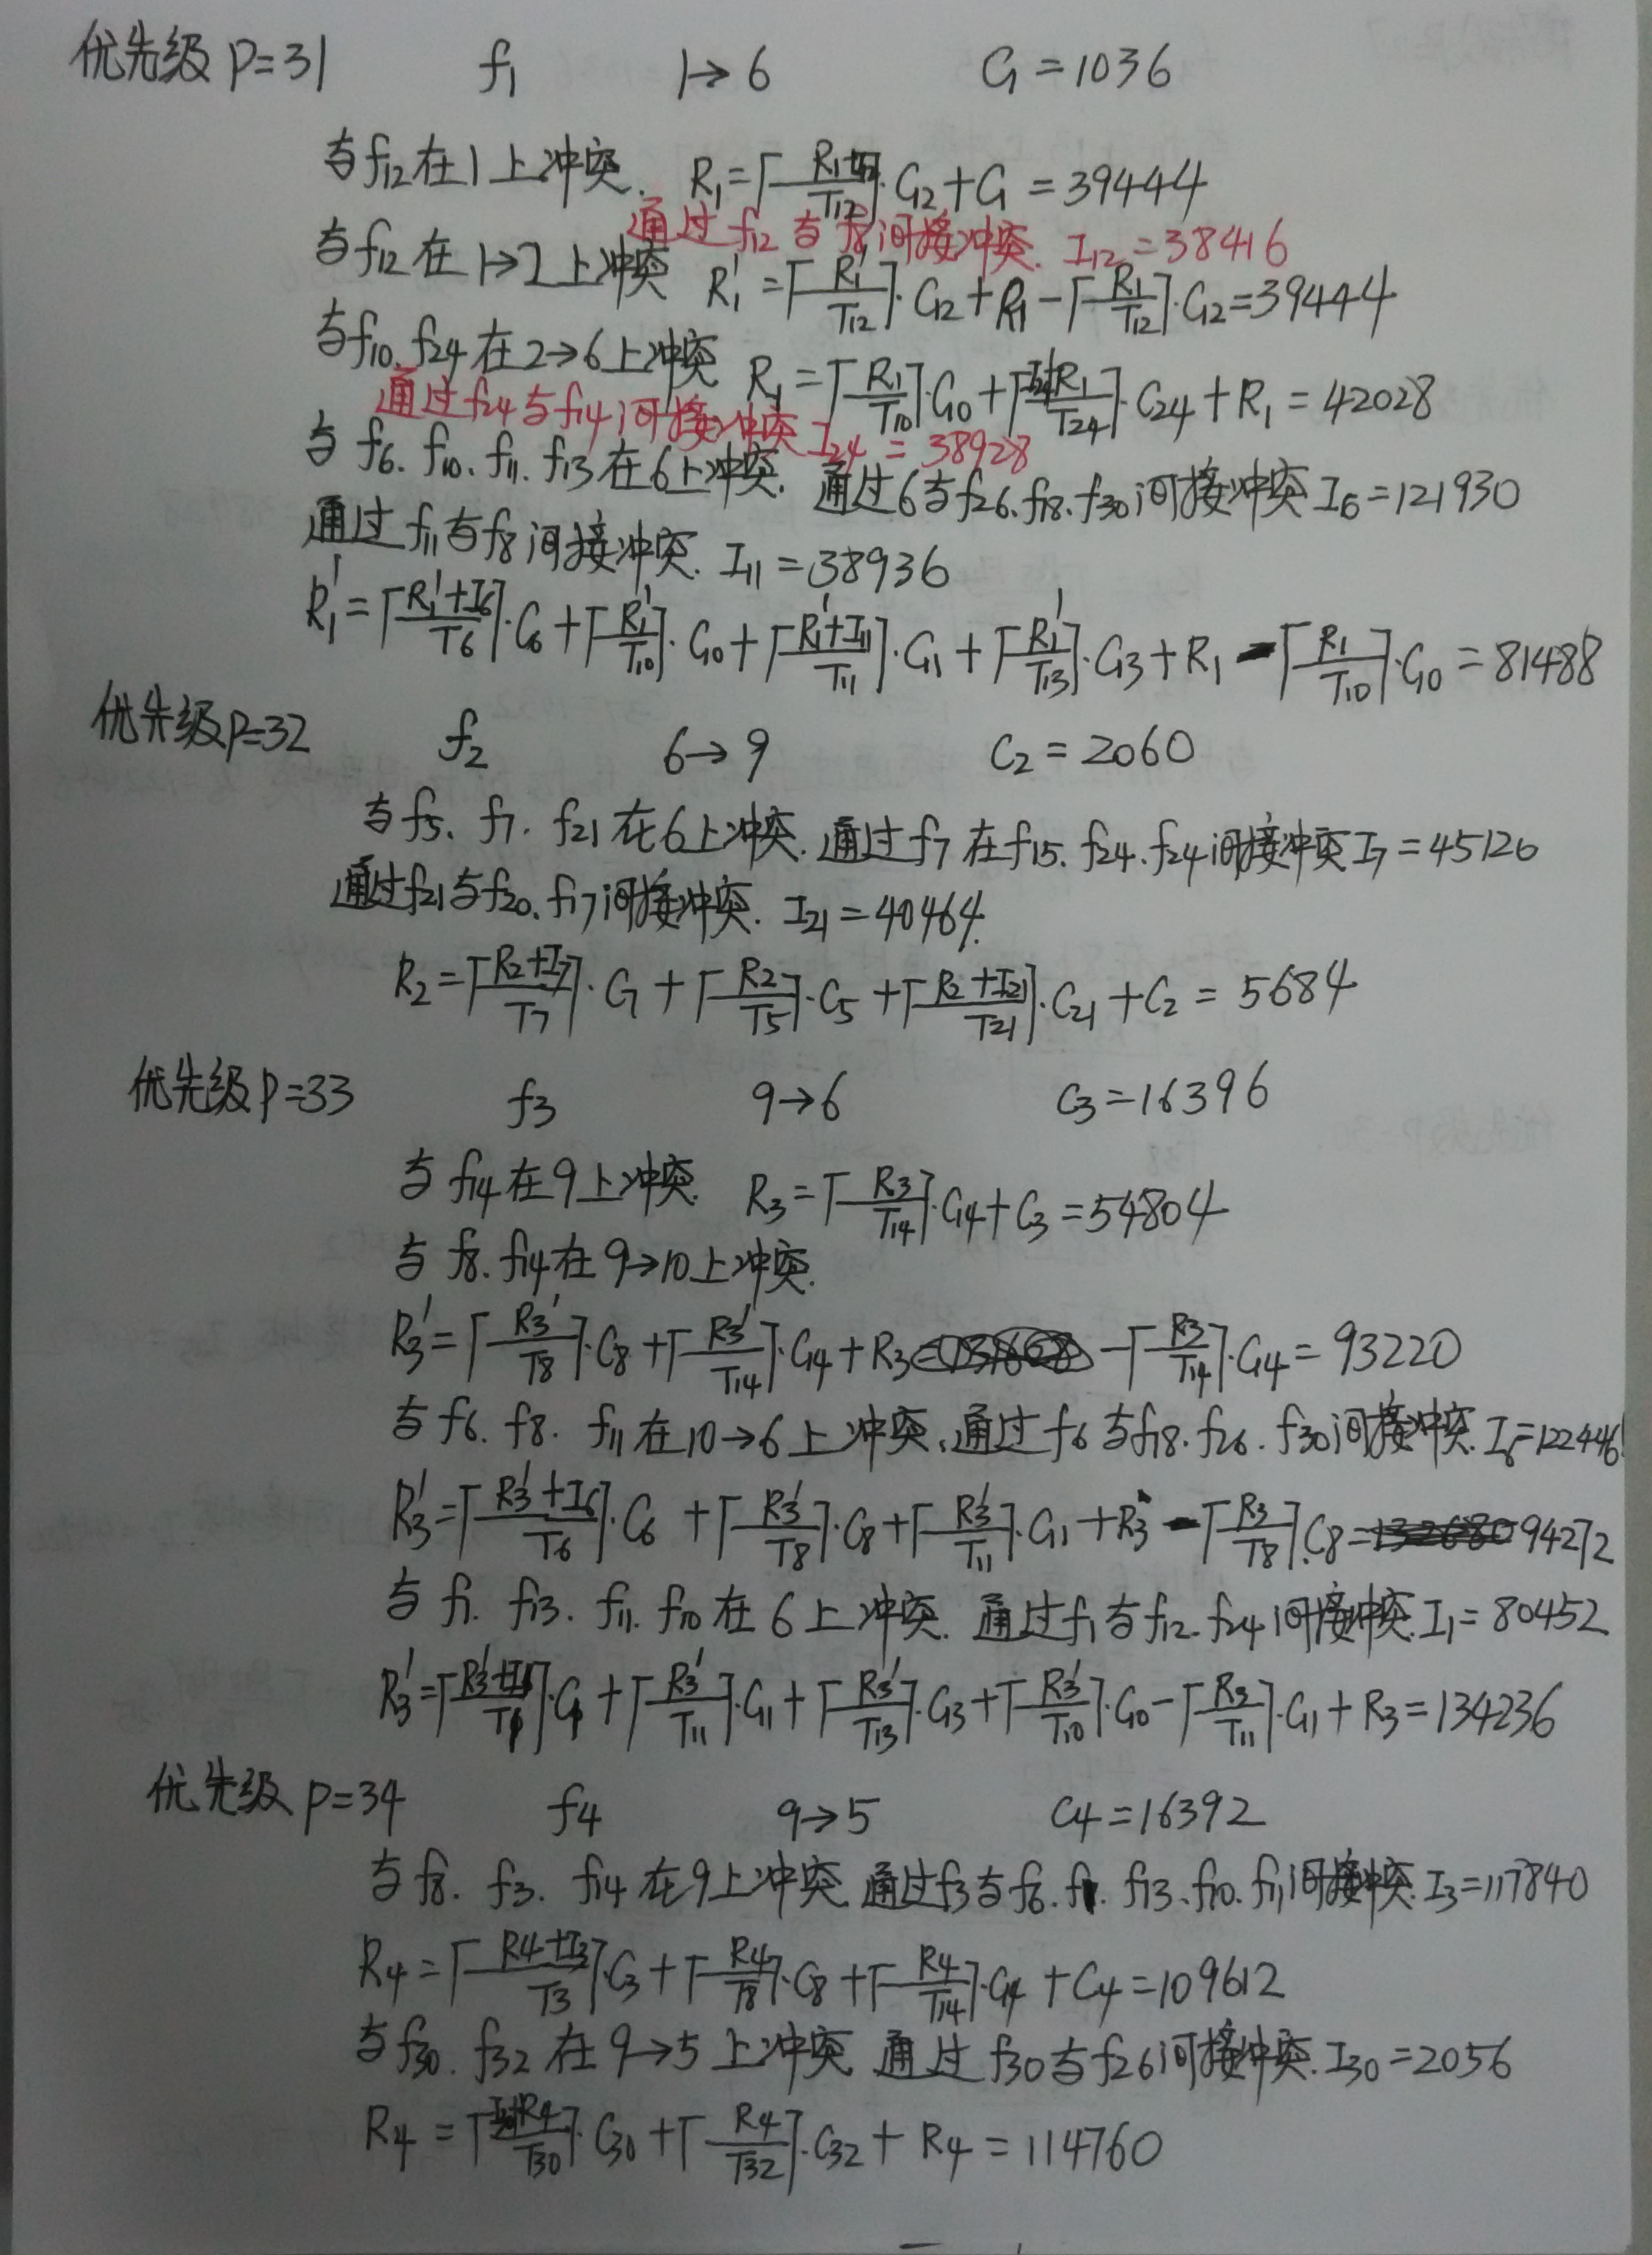 优先级 P=31 f1 1→6 C1=1036
与f12在1上冲突. R1=⌈R1+I12/T12⌉·C12+C1=39444
通过f12与f8间接冲突. I12=38416
与f12在1→2上冲突 R1'=⌈R1'/T12⌉·C12+R1-⌈R1/T12⌉·C12=39444
与f10、f24在2→6上冲突 R1=⌈R1/T10⌉·C10+⌈I24+R1/T24⌉·C24+R1=42028
通过f24与f14间接冲突 I24=38928
与f6、f10、f11、f13在6上冲突. 通过6与f26、f18、f30间接冲突 I6=121930
通过f11与f8间接冲突. I11=38936
R1'=⌈R1'+I6/T6⌉·C6+⌈R1'/T10⌉·C10+⌈R1'+I11/T11⌉·C11+⌈R1'/T13⌉·C13+R1-⌈R1/T10⌉·C10=81488
优先级P=32 f2 6→9 C2=2060
与f5、f7、f21在6上冲突. 通过f7在f15、f24、f24间接冲突I7=45126
通过f21与f20、f17间接冲突. I21=40464.
R2=⌈R2+I7/T7⌉·C7+⌈R2/T5⌉·C5+⌈R2+I21/T21⌉·C21+C2=5684
优先级P=33 f3 9→6 C3=16396
与f14在9上冲突. R3=⌈R3/T14⌉·C14+C3=54804
与f8、f14在9→10上冲突.
R3'=⌈R3'/T8⌉·C8+⌈R3'/T14⌉·C14+R3-⌈R3/T14⌉·C14=93220
与f6、f8、f11在10→6上冲突,通过f6与f18、f26、f30间接冲突. I6=122446
R3'=⌈R3'+I6/T6⌉·C6+⌈R3'/T8⌉·C8+⌈R3'/T11⌉·C11+R3-⌈R3/T8⌉·C8=94272
与f1、f13、f11、f10在6上冲突. 通过f1与f12、f24间接冲突. I1=80452
R3'=⌈R3'+I1/T1⌉·C1+⌈R3'/T11⌉·C11+⌈R3'/T13⌉·C13+⌈R3'/T10⌉·C10-⌈R3/T11⌉·C11+R3=134236
优先级P=34 f4 9→5 C4=16392
与f8、f3、f14在9上冲突 通过f3与f6、f1、f13、f10、f11间接冲突. I3=117840
R4=⌈R4+I3/T3⌉·C3+⌈R4/T8⌉·C8+⌈R4/T14⌉·C14+C4=109612
与f30、f32在9→5上冲突 通过f30与f26间接冲突. I30=2056
R4=⌈I30+R4/T30⌉·C30+⌈R4/T32⌉·C32+R4=114760